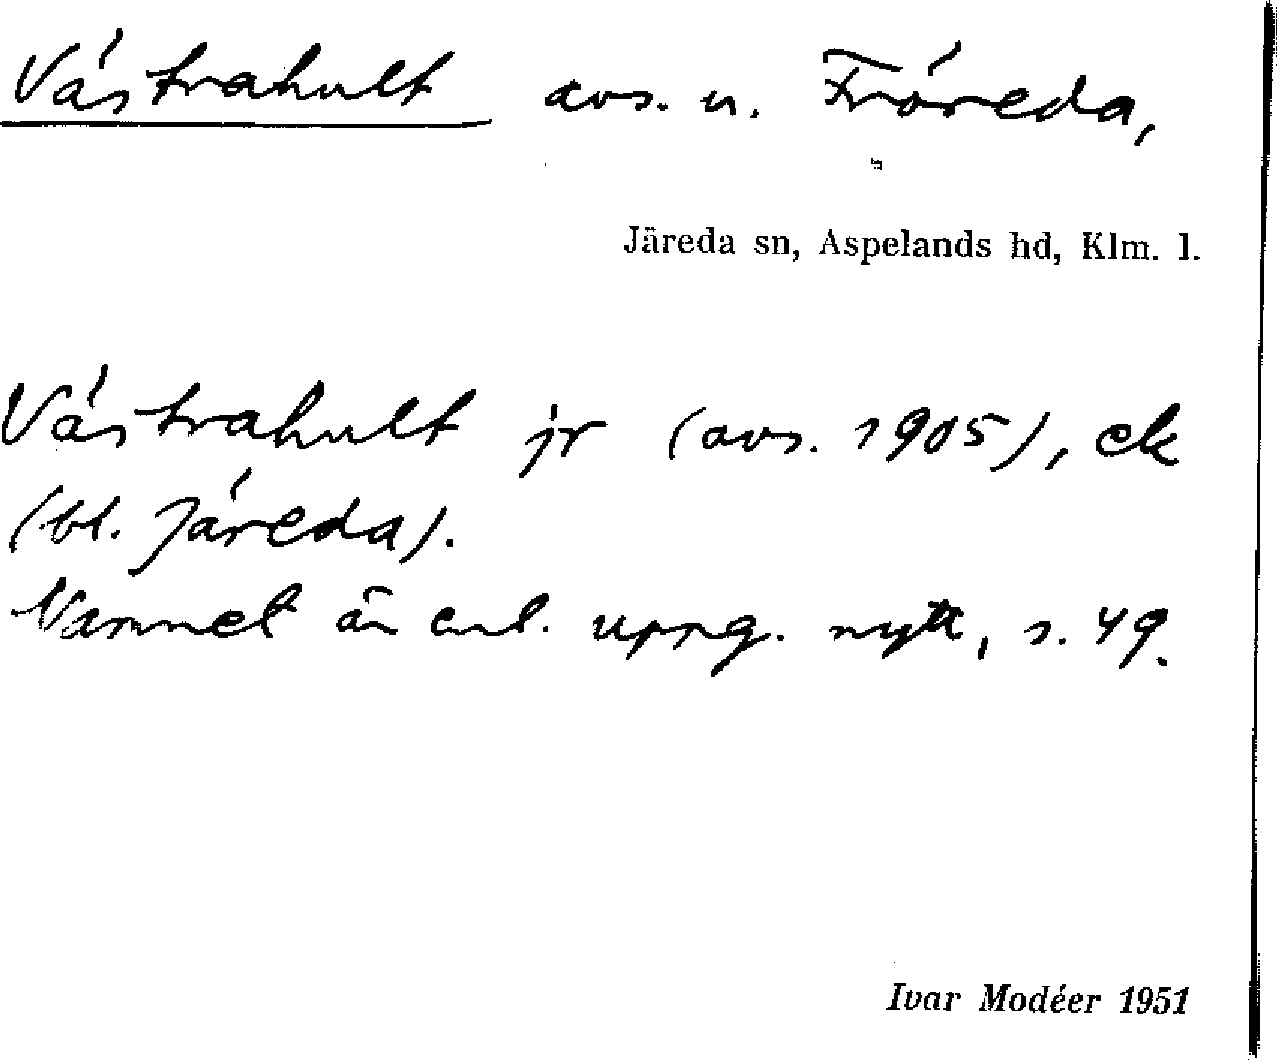 Västrahult avs. u. Fröreda,
Järeda sn, Aspelands hd, Klm. l.
Västrahult jr (avs. 1905), ek
(bl. Järeda).
Namnet är enl. uppg. nytt, s. 49.
Ivar Modéer 1951